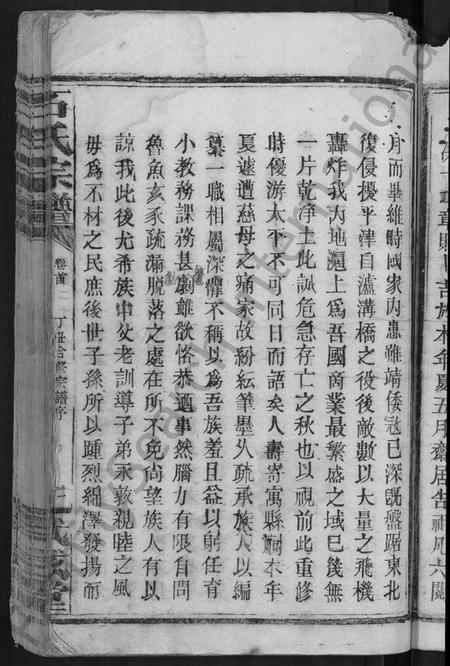 月而畢維時國家內患雖靖倭寇已深旣盤踞東北
復侵擾平津自瀘溝橋之役後敵數以大量之飛機
轟炸我內地滬上爲吾國商業最繁盛之域已幾無
一片乾淨土此誠危急存亡之秋也以視前此重修
時優游太平不可同日而語矣人壽寄寓縣嗣本年
夏遽遭慈母之痛家故紛紜筆墨久疏承族人以編
纂一職相屬深懼不稱以爲吾族羞且益以躬任育
小敎務課務甚劇雖欲恪恭迺事然腦力有限自問
魯魚亥豕疏漏脫落之處在所不免尚望族人有以
諒我此後尤希族中父老訓導子弟永敦親睦之風
毋爲不材之民庶後世子孫所以踵烈綿澤發揚而
石氏宗譜
卷首
丁丑合修宗譜序